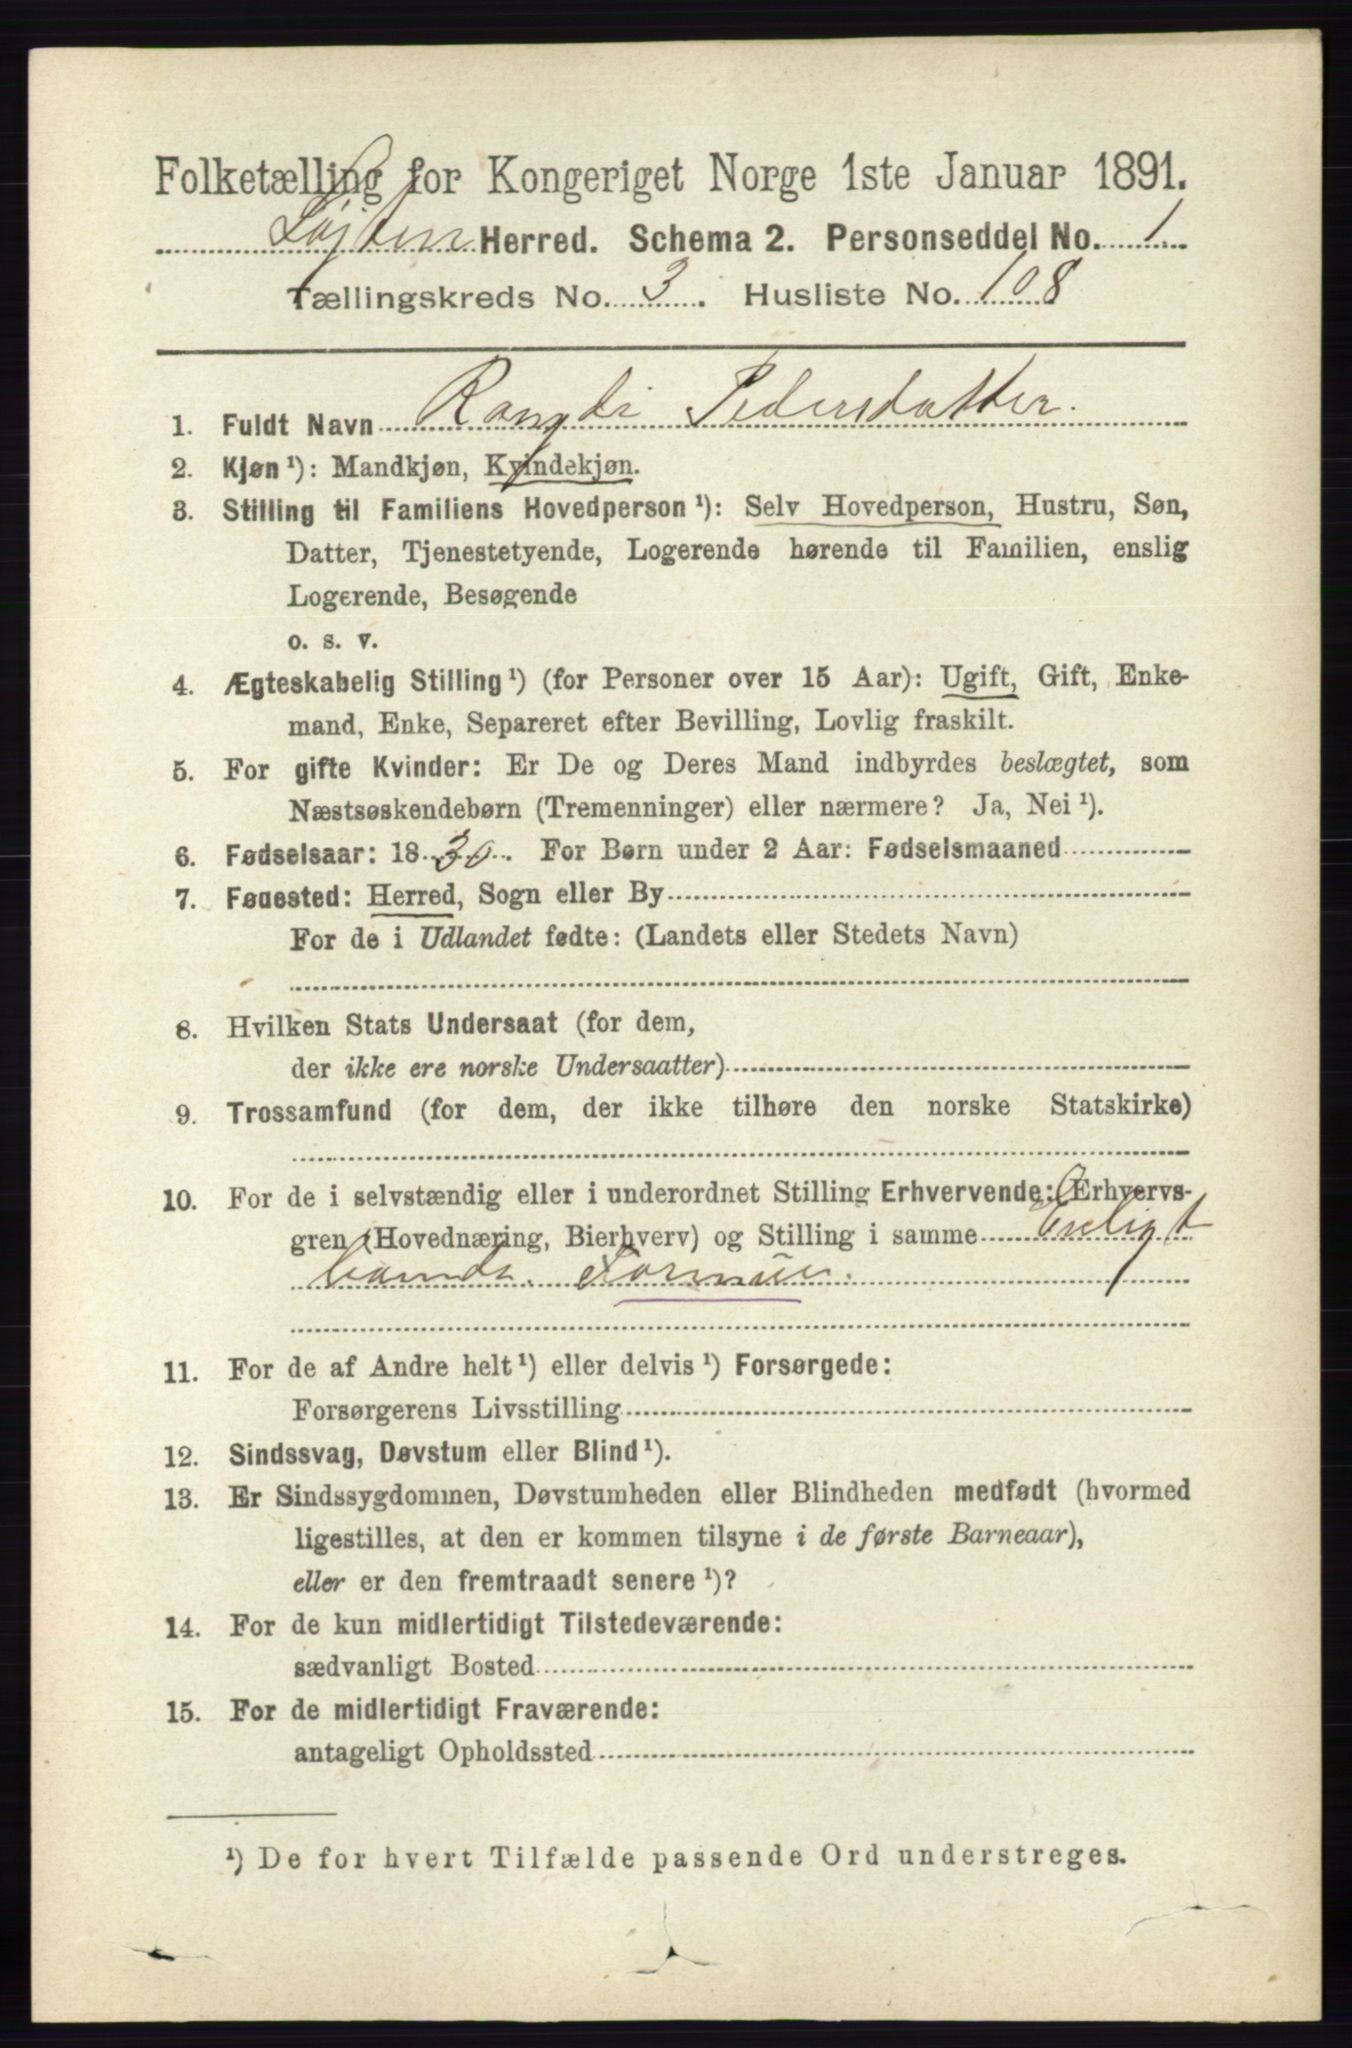 Folketælling for Kongeriget Norge 1ste Januar 1891.
Løjten Herred. Schema 2. Personseddel No. 1
Tællingskreds No. 3. Husliste No. 108
1. Fuldt Navn Rangdi Pedersdatter.
2. Kjøn¹): Mandkjøn, Kvindekjøn.
3. Stilling til Familiens Hovedperson¹): Selv Hovedperson, Hustru, Søn,
Datter, Tjenestetyende, Logerende hørende til Familien, enslig
Logerende, Besøgende
o. s. v.
4. Ægteskabelig Stilling¹) (for Personer over 15 Aar): Ugift, Gift, Enke-
mand, Enke, Separeret efter Bevilling, Lovlig fraskilt.
5. For gifte Kvinder: Er De og Deres Mand indbyrdes beslægtet, som
Næstsøskendebørn (Tremenninger) eller nærmere? Ja, Nei¹).
6. Fødselsaar: 1830. For Børn under 2 Aar: Fødselsmaaned
7. Fødested: Herred, Sogn eller By
For de i Udlandet fødte: (Landets eller Stedets Navn)
8. Hvilken Stats Undersaat (for dem,
der ikke ere norske Undersaatter)
9. Trossamfund (for dem, der ikke tilhøre den norske Statskirke)
10. For de i selvstændig eller i underordnet Stilling Erhvervende: Erhvervs-
gren (Hovednæring, Bierhverv) og Stilling i samme
11. For de af Andre helt¹) eller delvis¹) Forsørgede:
Forsørgerens Livsstilling
12. Sindssvag, Døvstum eller Blind¹).
13. Er Sindssygdommen, Døvstumheden eller Blindheden medfødt (hvormed
ligestilles, at den er kommen tilsyne i de første Barneaar),
eller er den fremtraadt senere¹)?
14. For de kun midlertidigt Tilstedeværende:
sædvanligt Bosted
15. For de midlertidigt Fraværende:
antageligt Opholdssted
¹) De for hvert Tilfælde passende Ord understreges.